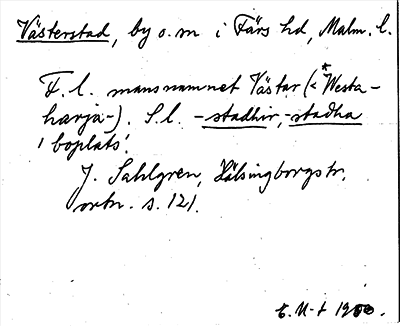 Västerstad, by o. m i Färs hd, Malm. l.
F. l. mansnamnet Västar (< *Westa-
harja-). S. l. -stadhir, -stadha
'boplats'.
J. Sahlgren, Hälsingborgstr.
ortn. s. 121.